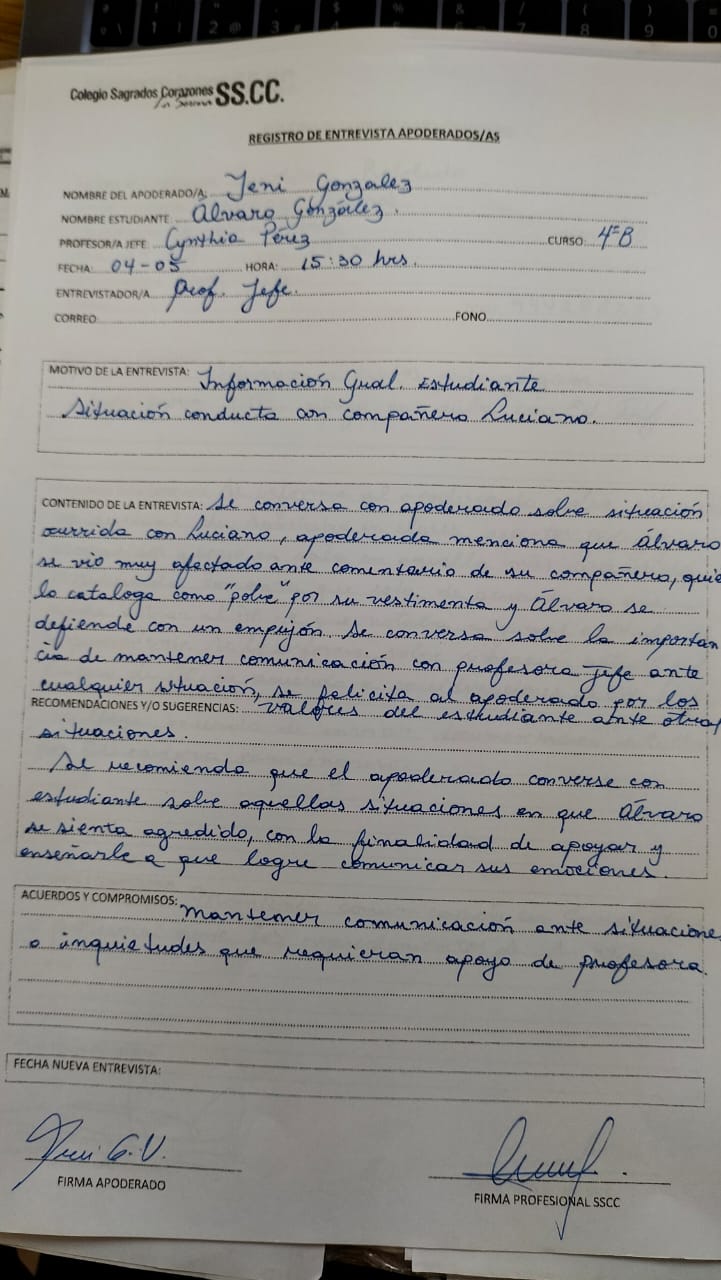 Colegio Sagrados Corazones SS.CC.
La Serena
REGISTRO DE ENTREVISTA APODERADOS/AS
NOMBRE DEL APODERADO/A: Jeni Gonzalez
NOMBRE ESTUDIANTE: Álvaro González.
PROFESOR/A JEFE: Cynthia Pérez CURSO: 4°B
FECHA: 04-05 HORA: 15:30 hrs.
ENTREVISTADOR/A: Prof. Jefe.
CORREO: FONO
MOTIVO DE LA ENTREVISTA: Información Gral. Estudiante
Situación conducta con compañero Luciano.
CONTENIDO DE LA ENTREVISTA: Se conversa con apoderado sobre situación
ocurrida con Luciano, apoderada menciona que Álvaro
se vio muy afectado ante comentario de su compañero, quie
lo cataloga como "pobre" por su vestimenta y Álvaro se
defiende con un empujón. Se conversa sobre la importan
cia de mantener comunicación con profesora Jefe ante
cualquier situación, se felicita al apoderado por los
RECOMENDACIONES Y/O SUGERENCIAS: valores del estudiante ante otras
situaciones.
Se recomienda que el apoderado converse con
estudiante sobre aquellas situaciones en que Álvaro
se sienta agredido, con la finalidad de apoyar y
enseñarle a que logre comunicar sus emociones.
ACUERDOS Y COMPROMISOS: Mantener comunicación ante situacione
o inquietudes que requieran apoyo de profesora.
FECHA NUEVA ENTREVISTA:
Jeni G.V.
FIRMA APODERADO
FIRMA PROFESIONAL SSCC